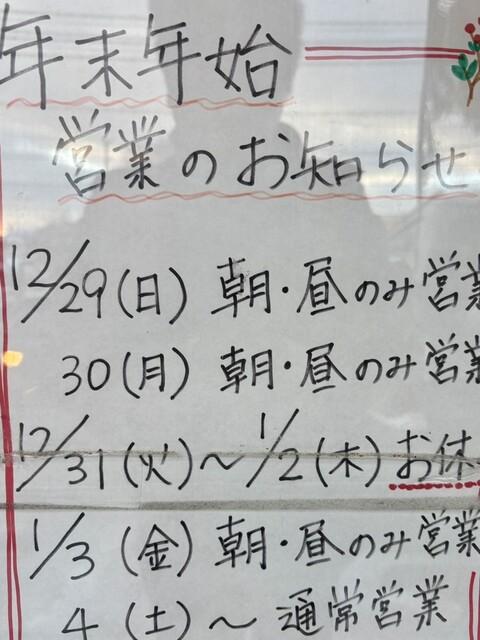 年末年始
営業のお知らせ
12/29(日) 朝・昼のみ営業
30(月) 朝・昼のみ営業
12/31(火)〜1/2(木) お休
1/3(金) 朝・昼のみ営業
4(土)〜 通常営業